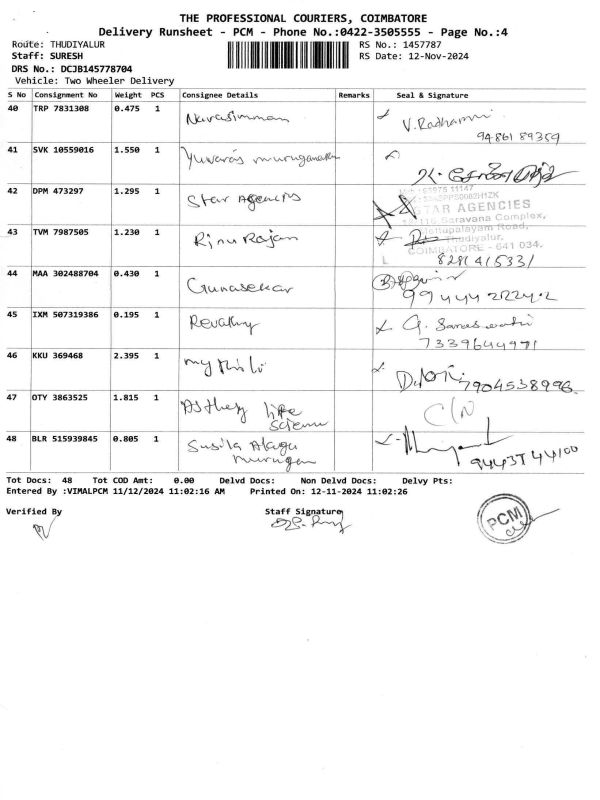 THE PROFESSIONAL COURIERS, COIMBATORE
Delivery Runsheet - PCM - Phone No.:0422-3505555 - Page No.:4
Route: THUDIYALUR RS No.: 1457787
Staff: SURESH RS Date: 12-Nov-2024
DRS No.: DCJB145778704
Vehicle: Two Wheeler Delivery
S No Consignment No Weight PCS Consignee Details Remarks Seal & Signature
40 TRP 7831308 0.475 1 Narasimman V. Radhamni
9486189359
41 SVK 10559016 1.550 1 Yuvaras muruganathan
42 DPM 473297 1.295 1 Star Agencies
STAR AGENCIES
Saravana Complex,
Road,
43 TVM 7987505 1.230 1 Rinu Rajan
Thudiyalur,
COIMBATORE - 641 034.
8281415331
44 MAA 302488704 0.430 1 Gunasekar
9944422242
45 IXM 507319386 0.195 1 Revathy G. Saraswathi
7339644971
46 KKU 369468 2.395 1 mythili
7904538996
47 OTY 3863525 1.815 1 life
Science
48 BLR 515939845 0.805 1 Susila Alagu
murugan
9443744100
Tot Docs: 48 Tot COD Amt: 0.00 Delvd Docs: Non Delvd Docs: Delvy Pts:
Entered By :VIMALPCM 11/12/2024 11:02:16 AM Printed On: 12-11-2024 11:02:26
Verified By Staff Signature
PCM